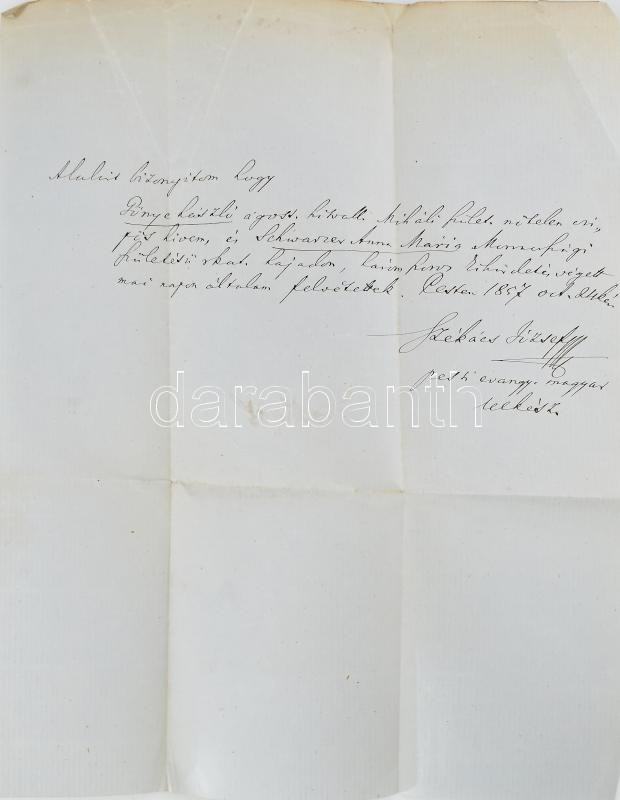 Alulirt bizonyitom hogy
Pönye László ágost. hitvall. Miháli szület. nőtelen czi-
pész hivem, és Schwarzer Anna Maria
születésü r. kat. hajadon, háromszoros kihirdetés végett
mai napon általam felvétettek. Pesten 1857 oct.
Székács József
pesti evangy. magyar
lelkész.
darabanth